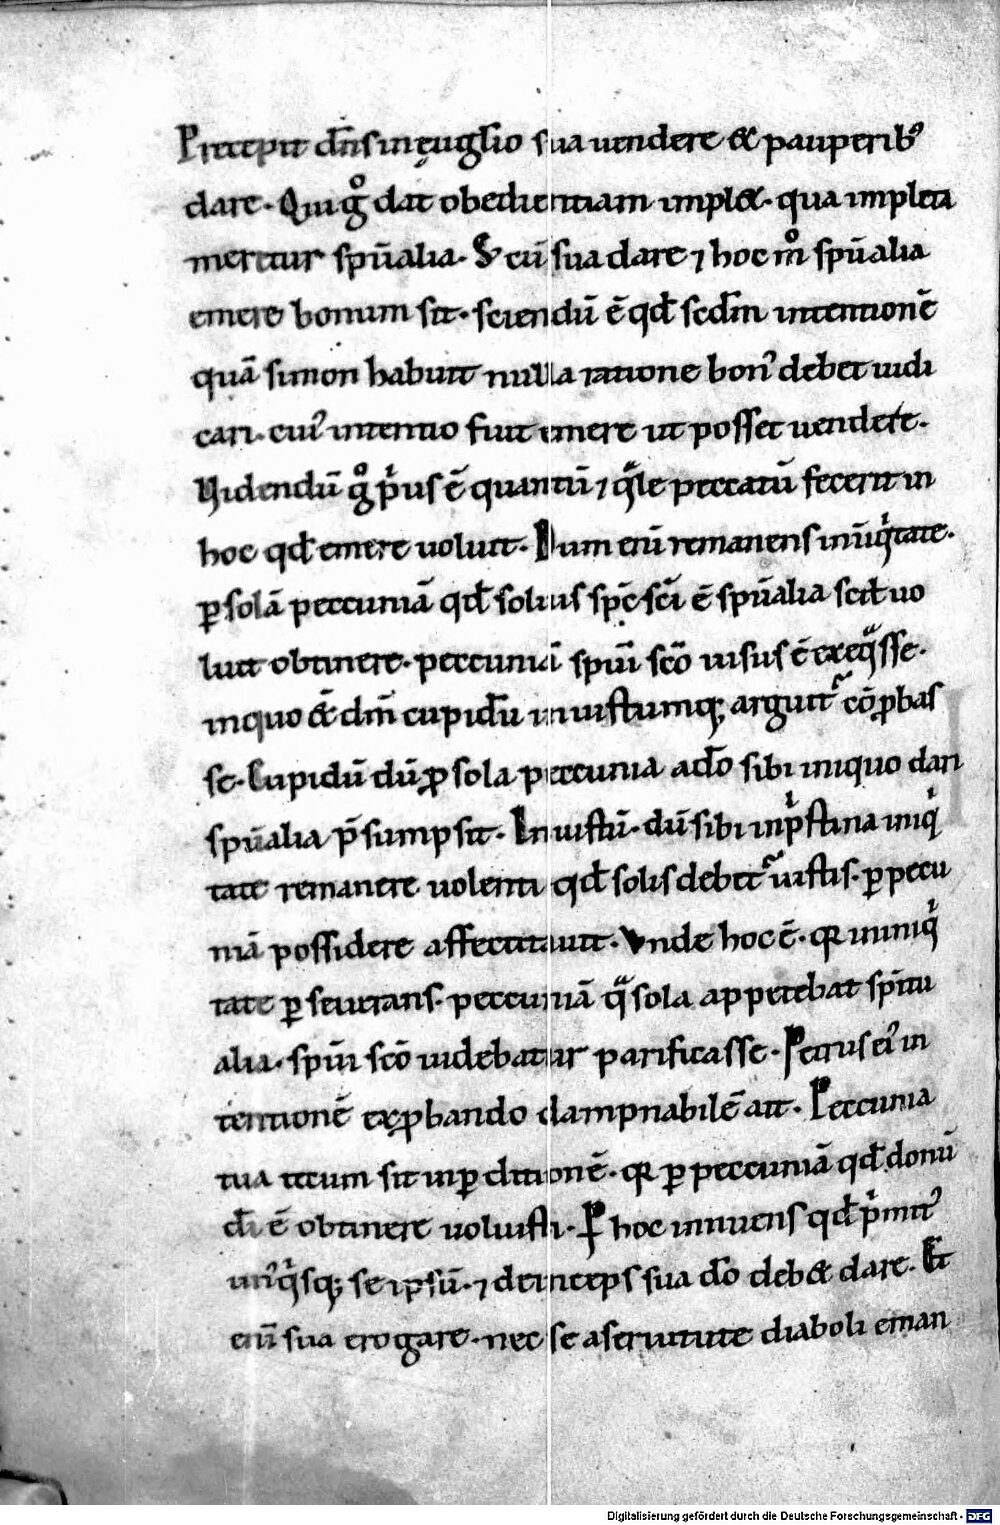 Precepit dn̄s in euḡlio sua uendere & pauperibꝰ
dare. Qui gͦ dat obedientiam impl&. qua impleta
mercatur sp̄ualia. S; cū sua dare ⁊ hoc mͦ sp̄ualia
emere bonum sit. sciendū ē qđ scđm intentionē
quā simon habuit nulla ratione bonꝰ debet iudi
cari. cuiꝰ intentio fuit emere ut posset uendere.
Uidendū gͦ pͥus ē quantū ⁊ qͣle peccatū fecerit in
hoc qđ emere uoluit. Dum eni remanens in iniqͥtate.
ꝑ solā peccuniā qđ solius sp̄c sc̄i ē sp̄ualia scit uo
luit obtinere. peccuniā spiu̅i sc̄o uisus ē exeqͣsse.
in quo & dm̄ cupidū iniustumq; arguit᷑ cōprobas
se. Cupidū dū ꝓ sola peccunia a do sibi iniquo dari
sp̄ualia p̄sumpsit. Iniustū. dū sibi in pͥstina iniqͥ
tate remanere uolenti qđ solis debet᷑ iustis. ꝑ pecu
niā possidere affectauit. Vnde hoc ē. qꝛ in iniqͥ
tate ꝑseuerans. peccuniā qͣ sola appetebat sp̄itu
alia. spiu̅i sc̄o uidebatur parificasse. Petrus eiꝰ in
tentionē exꝓbando dampnabilē ait. Peccunia
tua tecum sit in ꝑditionē. qꝛ ꝑ peccuniā qđ donū
dī ē obtinere uoluisti. Per hoc innuens qđ pͥmitꝰ
unꝰqͥsq; se ipsū. ⁊ deinceps sua do deb& dare. Et
enī sua erogare. nec se a seruitute diaboli eman
Digitalisierung gefördert durch die Deutsche Forschungsgemeinschaft - DFG